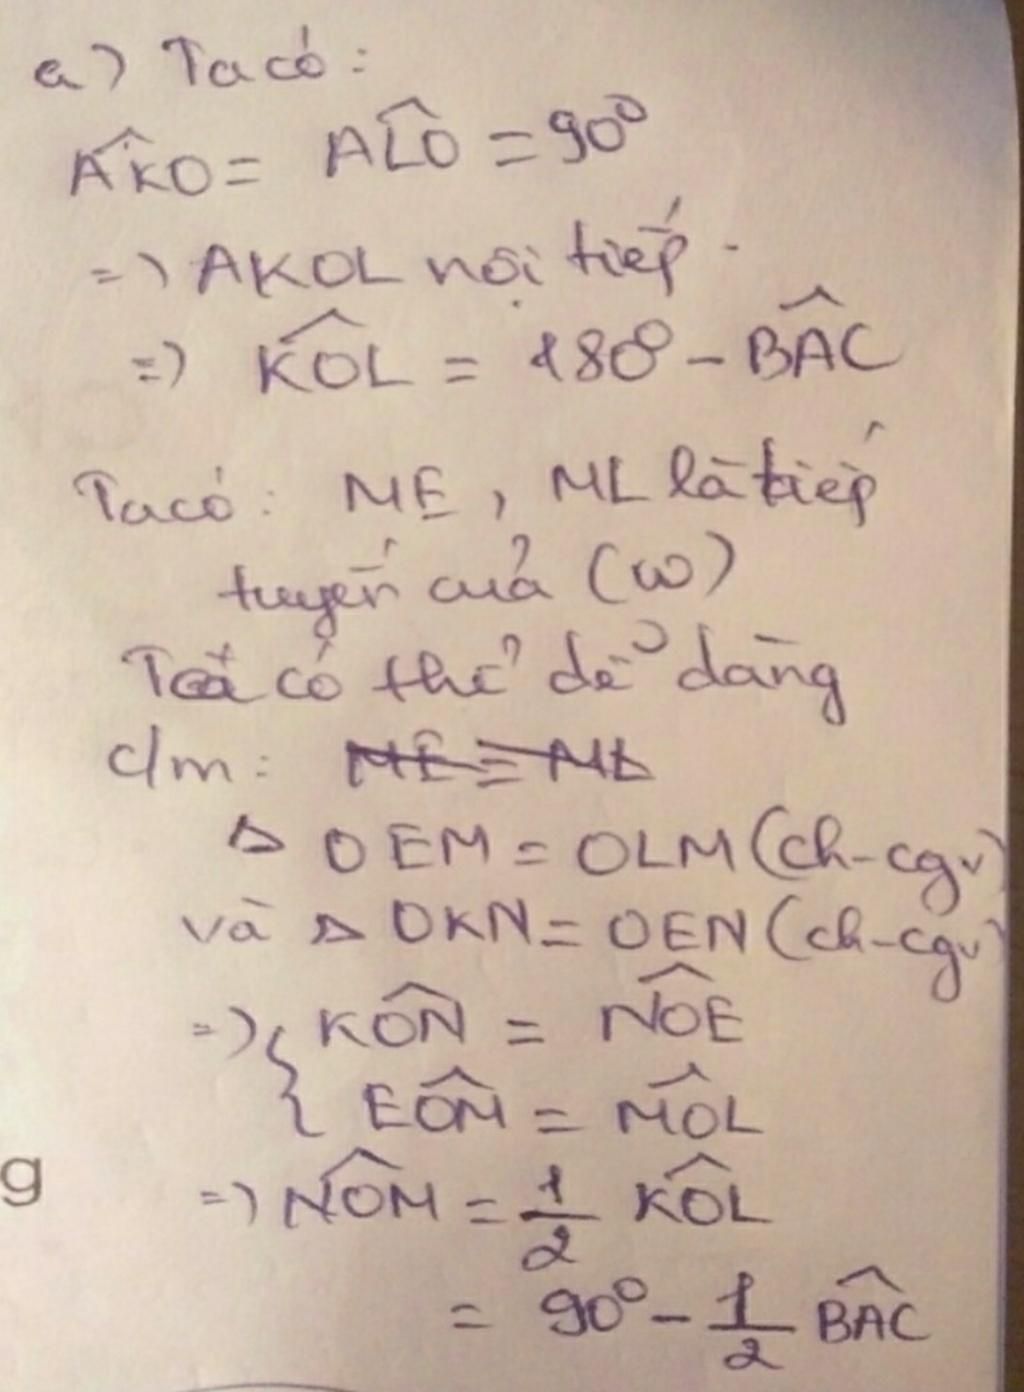 a) Ta có:
AK̂O = AL̂O = 90⁰
=> AKOL nội tiếp.
=> KÔL = 180⁰ - BÂC
Ta có: ME, ML là tiếp
tuyến của (ω)
Ta có thể dễ dàng
c/m: ME = ML
Δ OEM = OLM (ch-cgv)
và Δ OKN = OEN (ch-cgv)
=> { KÔN = NÔE
EÔM = MÔL
=> NÔM = 1/2 KÔL
= 90⁰ - 1/2 BÂC
g